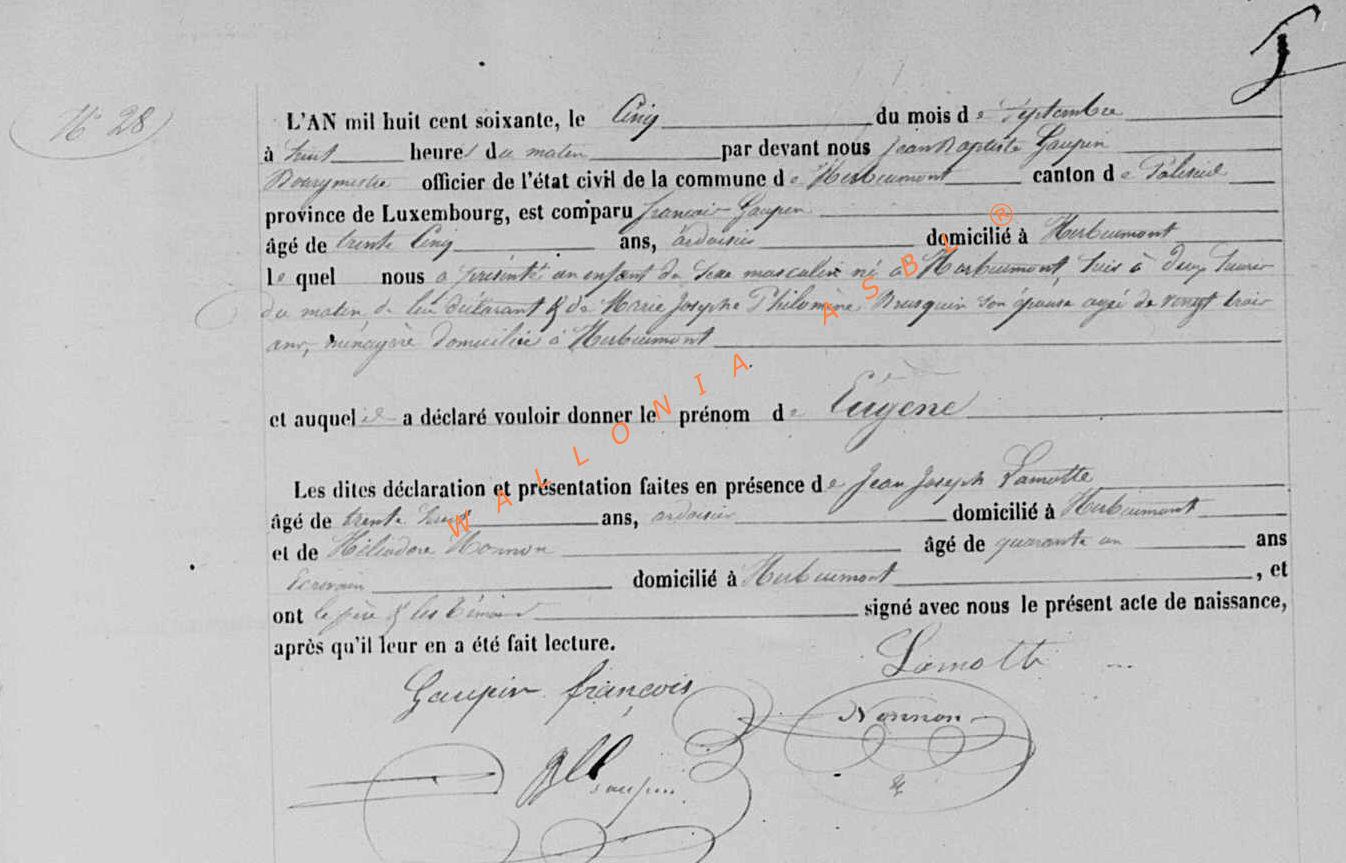 N° 28
L'AN mil huit cent soixante, le Cinq du mois de Septembre
à huit heures du matin par devant nous Jean Baptiste Gaupin
Bourgmestre officier de l'état civil de la commune de Herbeumont canton de Paliseul
province de Luxembourg, est comparu françois Gaupin
âgé de trente Cinq ans, ardoisier domicilié à Herbeumont
le quel nous a présenté un enfant du sexe masculin né à Herbeumont, à deux heures
du matin de lui déclarant & de Marie Josephe Philomène son épouse agée de vingt trois
ans, ménagère domiciliée à Herbeumont
et auquel il a déclaré vouloir donner le prénom de Eugène
Les dites déclaration et présentation faites en présence de Jean Joseph Lamotte
âgé de trente ans, ardoisier domicilié à Herbeumont
et de Héliodore Nonnon âgé de quarante un ans
Ecrivain domicilié à Herbeumont, et
ont le père & les témoins signé avec nous le présent acte de naissance,
après qu'il leur en a été fait lecture.
Lamotte
Gaupin françois
Nonnon
Gaupin
WALLONIA ASBL ®